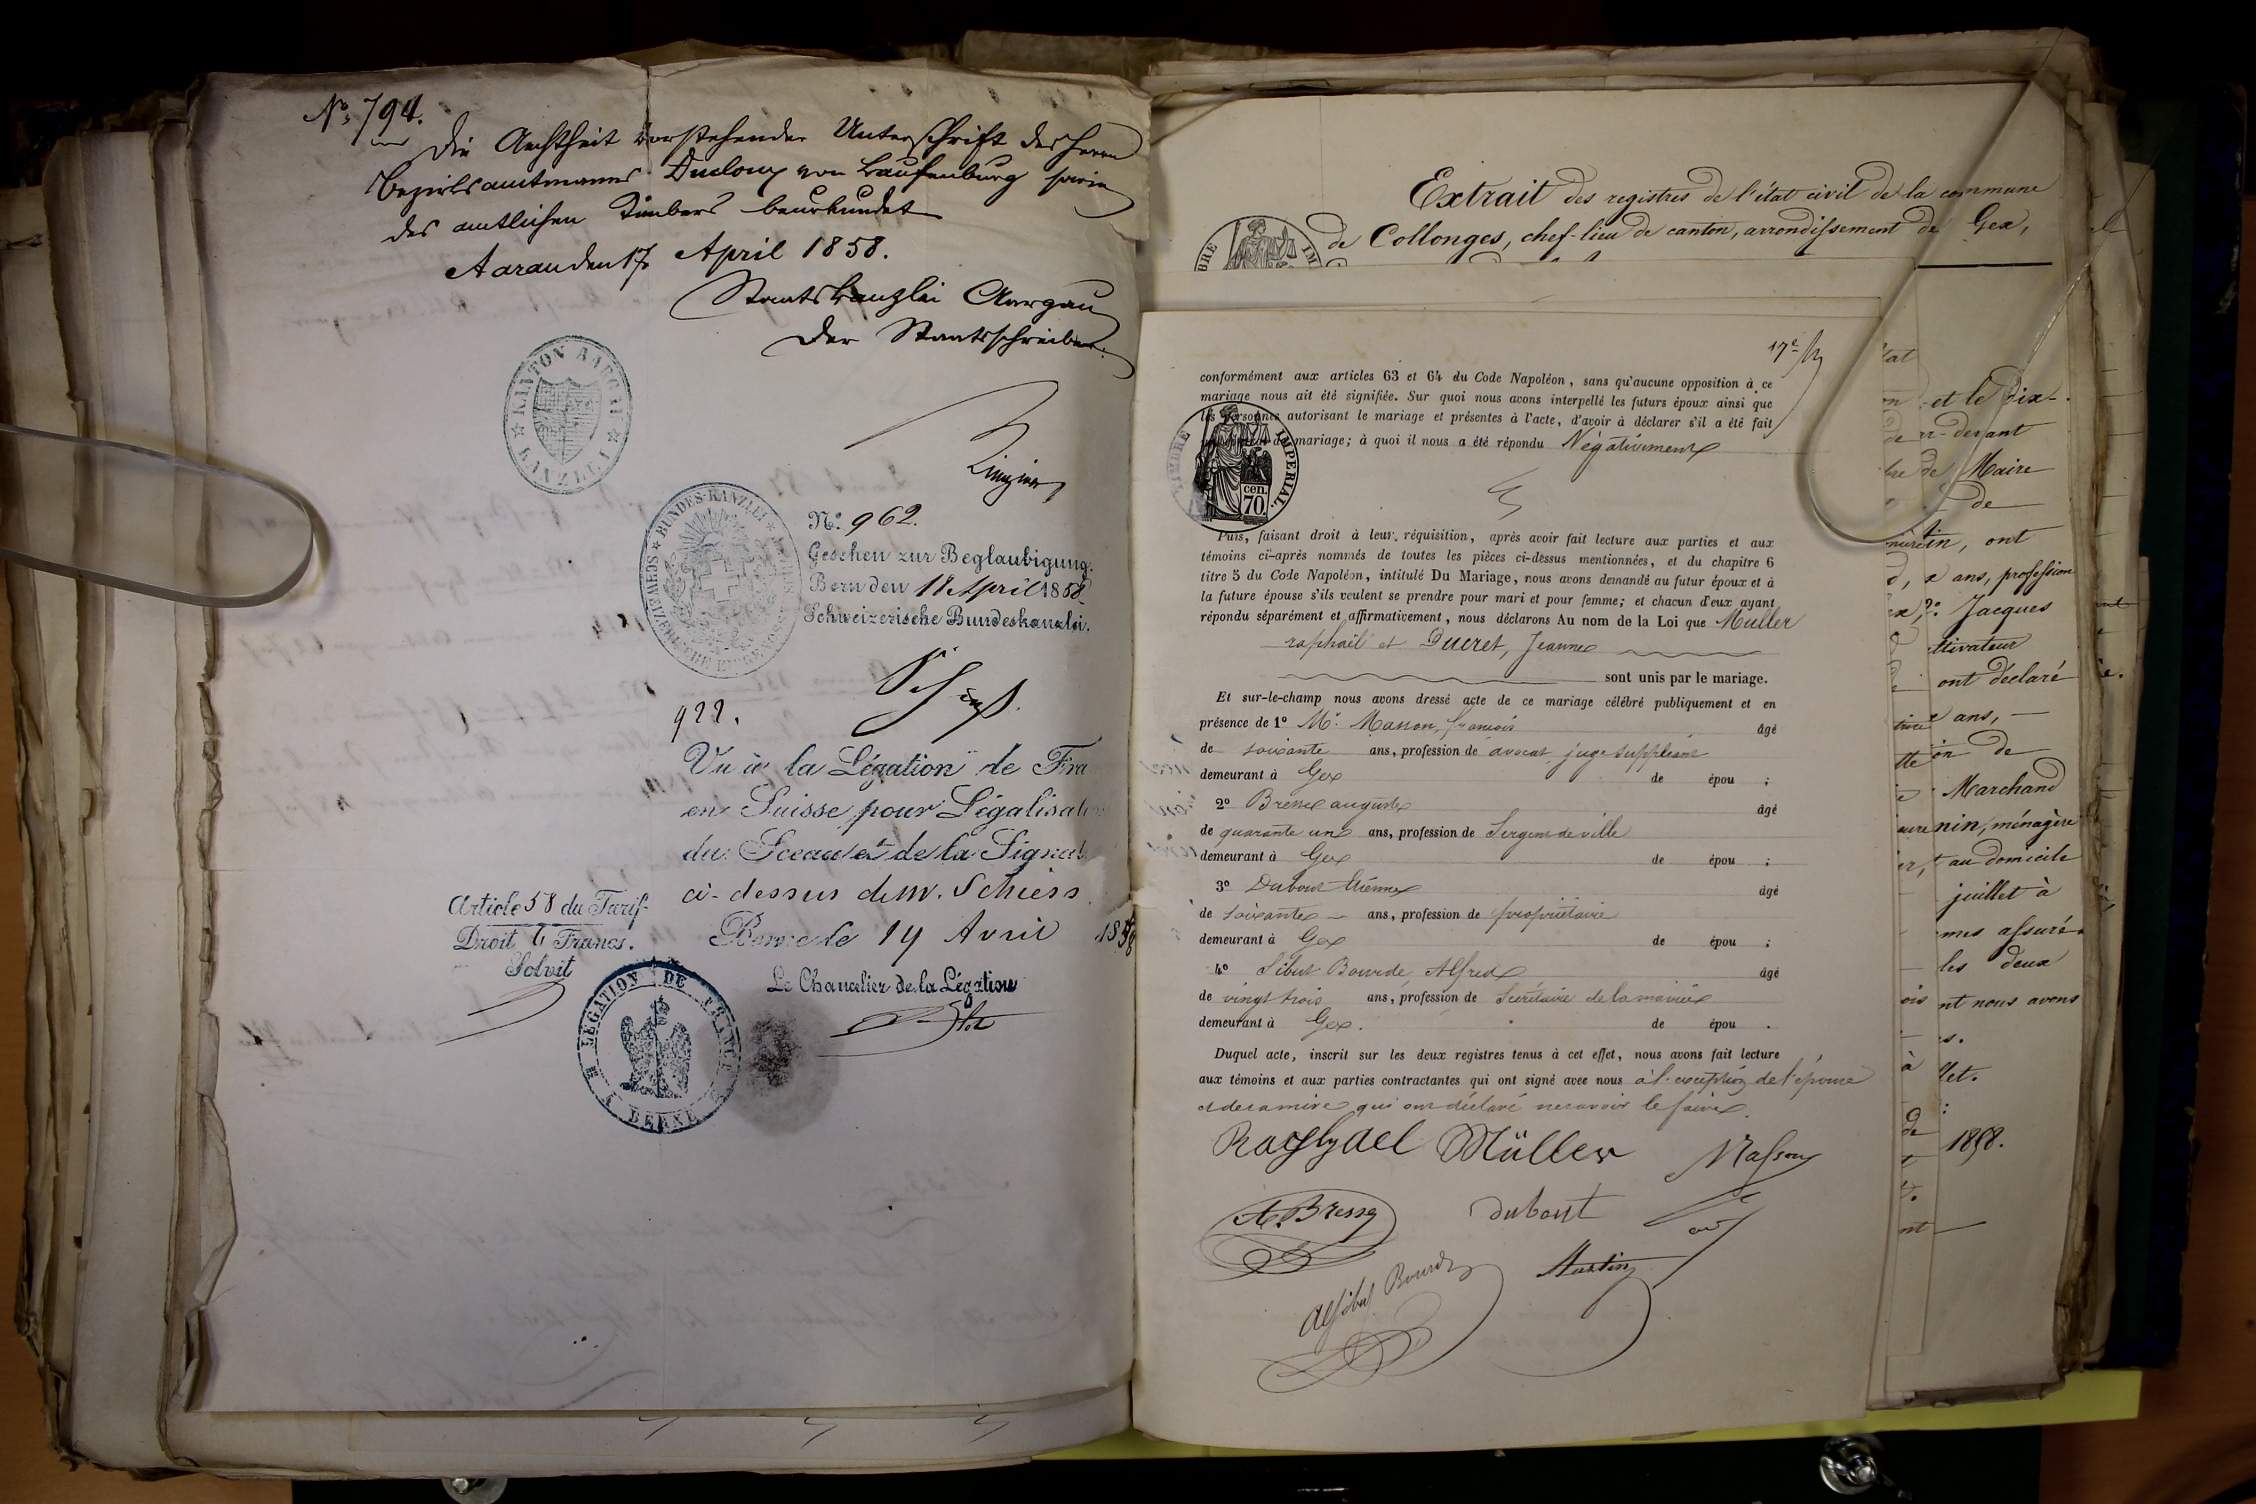 No. 794.
Die Aechtheit vorstehender Unterschrift des Herrn
Bezirksamtmanns von Laufenburg sowie
des amtlichen Timbers beurkundet
Aarau den 17. April 1858.
Staatskanzlei Aargau
Der Staatsschreiber:
KANTON AARGAU
KANZLEI
SCHWEIZERISCHE EIDGENOSSENSCHAFT BUNDES-KANZLEI
No. 962.
Geschen zur Beglaubigung.
Bern den 18 April 1858
Schweizerische Bundeskanzlei.
Schiess.
922.
Vu à la Légation de Fra
en Suisse pour Légalisat
du Sceau et de la Signat
ci-dessus de M. Schiess
Berne le 19 Avril 1858
Article 58 du Tarif
Droit 4 Francs.
Solvit
Le Chancelier de la Légation
LEGATION DE FRANCE
A BERNE
Extrait des registres de l'état civil de la commune
de Collonges, chef-lieu de canton, arrondissement de Gex,
17e
conformément aux articles 63 et 64 du Code Napoléon, sans qu'aucune opposition à ce
mariage nous ait été signifiée. Sur quoi nous avons interpellé les futurs époux ainsi que
les personnes autorisant le mariage et présentes à l'acte, d'avoir à déclarer s'il a été fait
mariage; à quoi il nous a été répondu Négativement
TIMBRE IMPERIAL.
cen.
70.
Puis, faisant droit à leur réquisition, après avoir fait lecture aux parties et aux
témoins ci-après nommés de toutes les pièces ci-dessus mentionnées, et du chapitre 6
titre 5 du Code Napoléon, intitulé Du Mariage, nous avons demandé au futur époux et à
la future épouse s'ils veulent se prendre pour mari et pour femme; et chacun d'eux ayant
répondu séparément et affirmativement, nous déclarons Au nom de la Loi que Muller
raphaël et Ducret, Jeanne
sont unis par le mariage.
Et sur-le-champ nous avons dressé acte de ce mariage célébré publiquement et en
présence de 1o Mr. Masson, françois âgé
de soixante ans, profession de avocat, juge suppléant
demeurant à Gex de épou ;
2o Bresse auguste âgé
de quarante un ans, profession de Sergent de ville
demeurant à Gex de épou ;
3o Dubout Etienne âgé
de soixante ans, profession de propriétaire
demeurant à Gex de épou ;
4o Sibut Bourde, Alfred âgé
de vingt trois ans, profession de Secrétaire de la mairie
demeurant à Gex. de épou .
Duquel acte, inscrit sur les deux registres tenus à cet effet, nous avons fait lecture
aux témoins et aux parties contractantes qui ont signé avec nous à l'exception de l'épouse
et de sa mère qui ont déclaré ne savoir le faire.
Raphael Müller Masson
A. Bresse dubout
Martin
Bourde
et le Dix-
devant
Maire
de
tin, ont
ans, profession
2o. Jacques
ltivateur
ont déclaré
ans, —
on de
Marchand
nin, ménagère
au domicile
juillet à
mes assuré
les deux
nt nous avons
s.
llet.
:
1858.